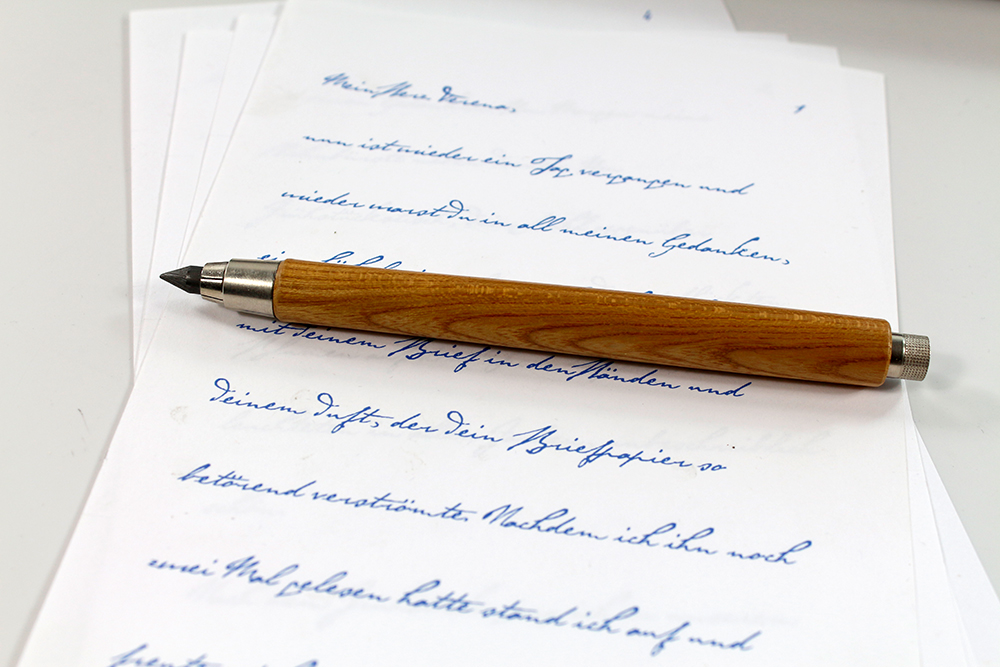 4
1
Mein Verena,
nun ist wieder ein Tag vergangen und
wieder warst Du in all meinen Gedanken,
mit deinem Brief in den Händen und
Deinem Duft, der Dein Briefpapier so
betörend verströmte. Nachdem ich ihn noch
zwei Mal gelesen hatte stand ich auf und